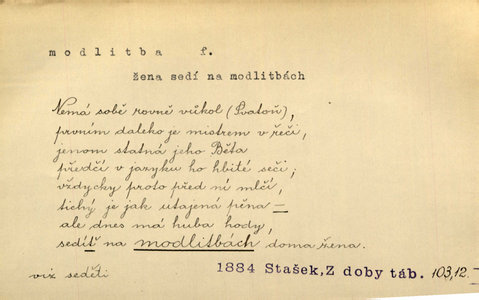 modlitba f.
žena sedí na modlitbách
Nemá sobě rovně vůkol (Svatoň),
prvním daleko je mistrem v řeči,
jenom statná jeho Běta
předčí v jazyku ho hbité seči;
vždycky proto před ní mlčí,
tichý je jak utajená pěna —
ale dnes má huba hody,
sedíť na modlitbách doma žena.
viz seděti
1884 Stašek, Z doby táb. 103,12.—